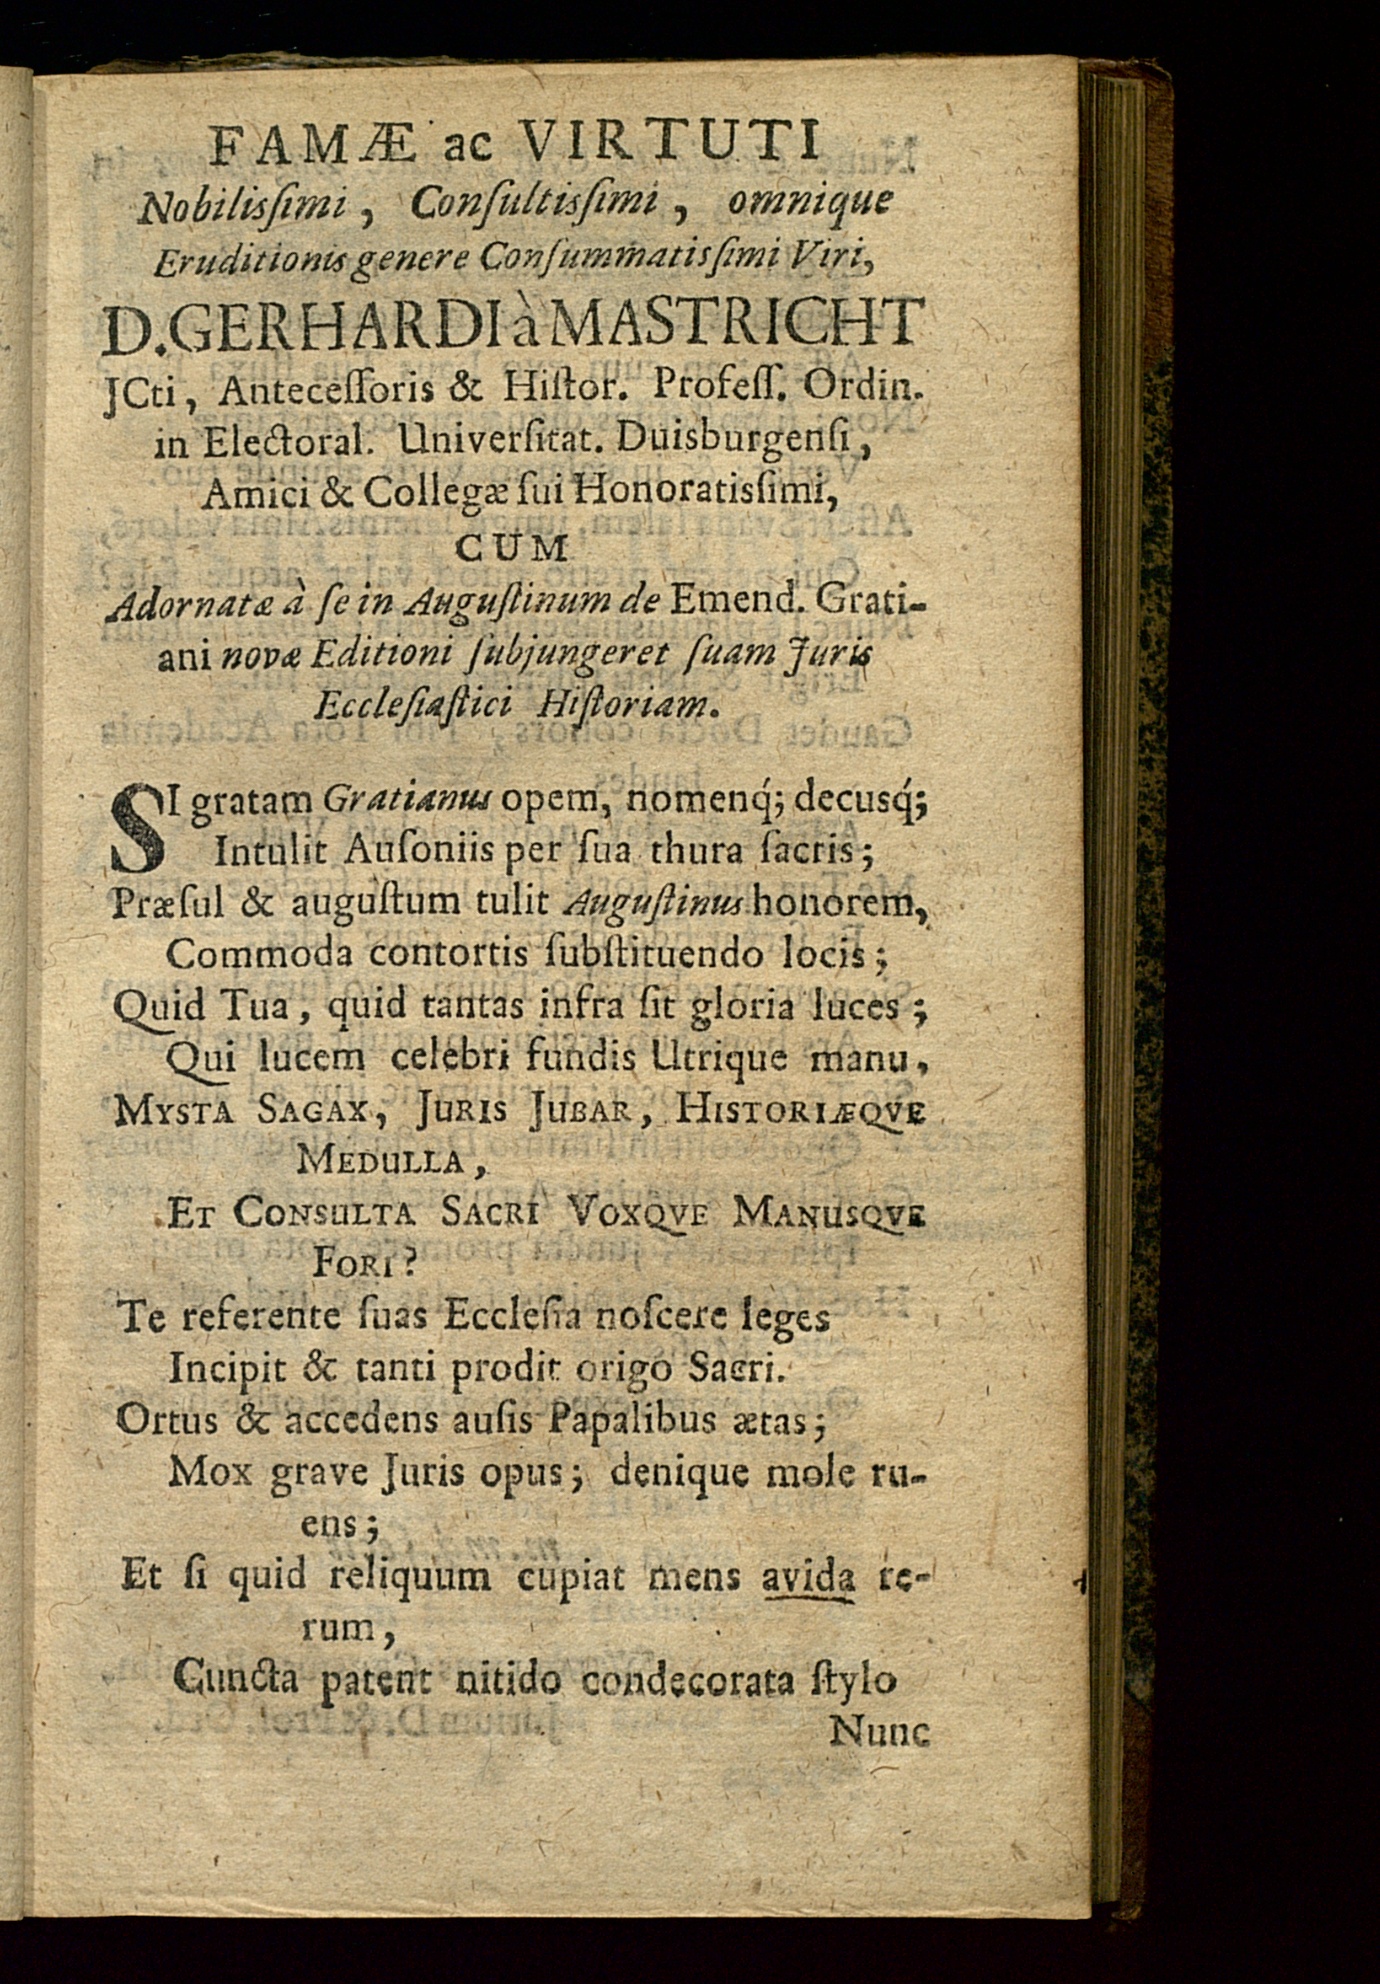 FAMÆ ac VIRTUTI
Nobilisſimi, Conſultisſimi, omnique
Eruditionis genere Conſummatisſimi Viri,
D. GERHARDI à MASTRICHT
JCti, Anteceſſoris & Hiſtor. Profeſſ. Ordin.
in Electoral. Univerſitat. Duisburgenſi,
Amici & Collegæ ſui Honoratisſimi,
CUM
Adornatæ à ſe in Auguſtinum de Emend. Grati-
ani novæ Editioni ſubjungeret ſuam Juris
Eccleſiaſtici Hiſtoriam.
SI gratam Gratianus opem, nomenq́; decusq́;
Intulit Auſoniis per ſua thura ſacris;
Præſul & auguſtum tulit Auguſtinus honorem,
Commoda contortis ſubſtituendo locis;
Quid Tua, quid tantas infra ſit gloria luces;
Qui lucem celebri fundis Utrique manu,
MYSTA SAGAX, JURIS JUBAR, HISTORIÆQVE
MEDULLA,
ET CONSULTA SACRI VOXQVE MANUSQVE
FORI?
Te referente ſuas Eccleſia noſcere leges
Incipit & tanti prodit origo Sacri.
Ortus & accedens auſis Papalibus ætas;
Mox grave Juris opus; denique mole ru-
ens;
Et ſi quid reliquum cupiat mens avida re-
rum,
Cuncta patent nitido condecorata ſtylo
Nunc